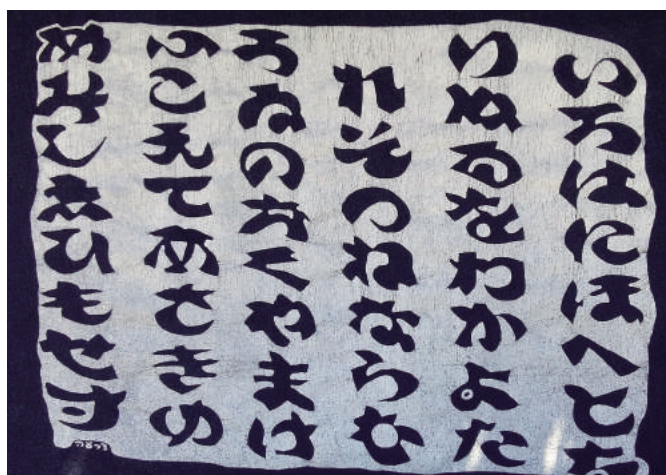 いろはにほへとち
りぬるをわかよた
れそつねならむ
うゐのおくやまけ
ふこえてあさきゆ
めみしゑひもせす